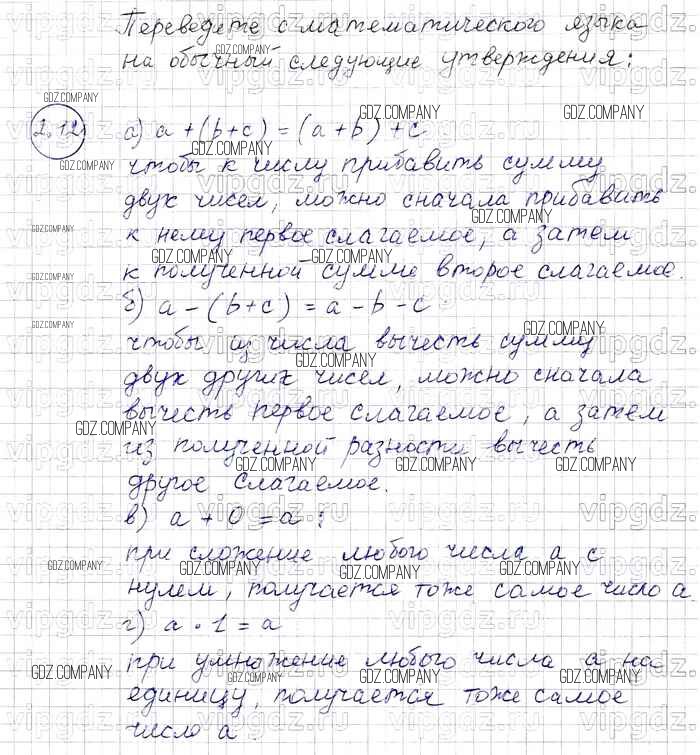 Переведите с математического языка
на обычный следующие утверждения:
2.12
а) a + (b + c) = (a + b) + c
чтобы к числу прибавить сумму
двух чисел, можно сначала прибавить
к нему первое слагаемое, а затем
к полученной сумме второе слагаемое.
б) a - (b + c) = a - b - c
чтобы из числа вычесть сумму
двух других чисел, можно сначала
вычесть первое слагаемое, а затем
из полученной разности вычесть
другое слагаемое.
в) a + 0 = a :
при сложение любого числа a с
нулем, получается тоже самое число a.
г) a · 1 = a
при умножение любого числа a на
единицу, получается тоже самое
число a.
GDZ.COMPANY
vipgdz.ru